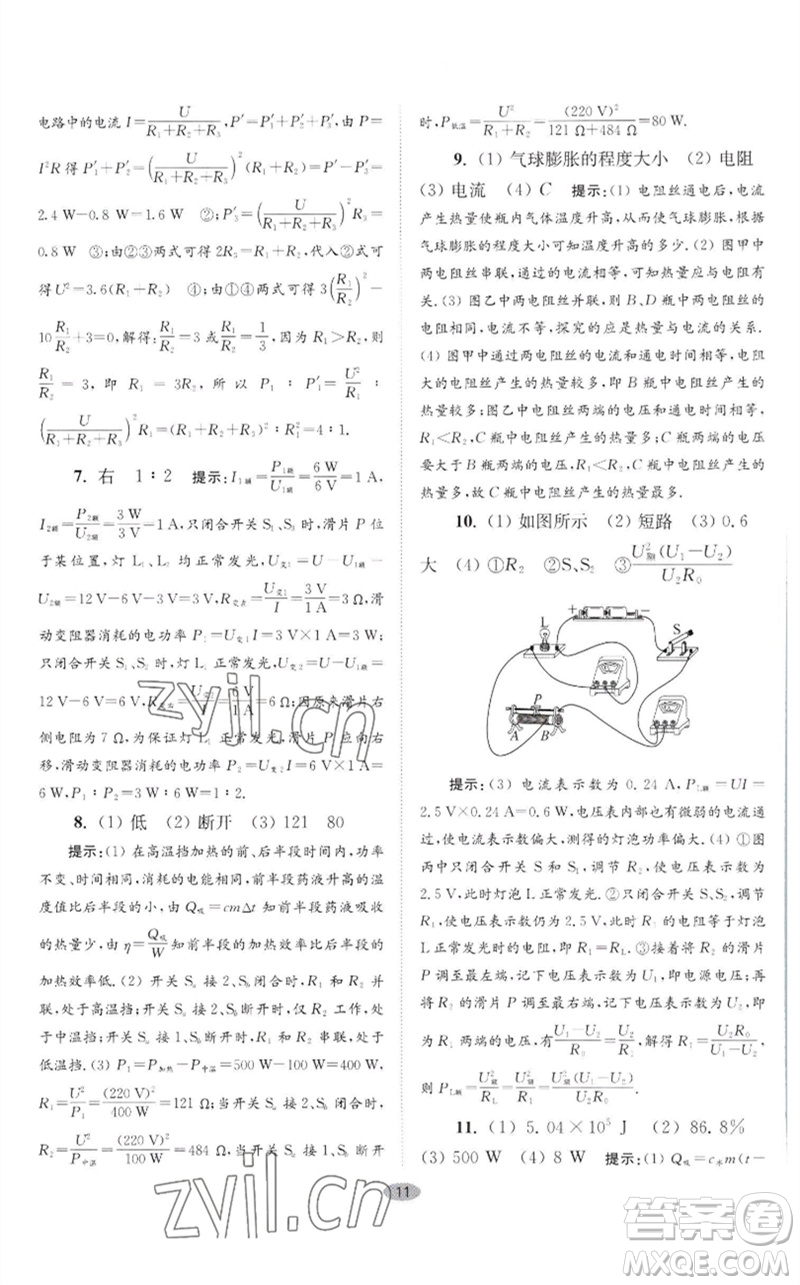 电路中的电流 I=U/(R₁+R₂+R₃),P′=P₁′+P₂′+P₃′,由 P=
I²R 得 P₁′+P₂′=(U/(R₁+R₂+R₃))²(R₁+R₂)=
2.4 W-0.8 W=1.6 W ②;P₃′=(U/(R₁+R₂+R₃))²R₃=
0.8 W ③;由②③两式可得 2R₃=R₁+R₂,代入②式可
得U²=3.6(R₁+R₂) ④;由①④两式可得 3(R₁/R₂)²-
10 R₁/R₂+3=0,解得:R₁/R₂=3或R₁/R₂=1/3,因为 R₁>R₂,则
R₁/R₂=3,即 R₁=3R₂,所以 P₁∶P₁′=U²/R₁∶
(U/(R₁+R₂+R₃))²R₁=(R₁+R₂+R₃)²∶R₁²=4∶1.
7. 右 1∶2 提示:I₁额=P₁额/U₁额=6 W/6 V=1 A,
I₂额=P₂额/U₂额=3 W/3 V=1 A,只闭合开关 S₁ 时,滑片 P 位
于某位置,灯 L₁、L₂ 均正常发光,U变1=U-U₁额-
U₂额=12 V-6 V-3 V=3 V,R变左=U变1/I=3 V/1 A=3 Ω,滑
动变阻器消耗的电功率 P₁=U变1I=3 V×1 A=3 W;
只闭合开关 S₂ 时,灯 L₁ 正常发光,U变2=U-U₁额=
12 V-6 V=6 V,R变右=U变2/I=6 V/1 A=6 Ω;因原来滑片右
侧电阻为 7 Ω,为保证灯 L₁ 正常发光,滑片 P 应向右
移,滑动变阻器消耗的电功率 P₂=U变2I=6 V×1 A=
6 W,P₁∶P₂=3 W∶6 W=1∶2.
8. (1) 低 (2) 断开 (3) 121 80
提示:(1) 在高温挡加热的前、后半段时间内,功率
不变、时间相同,消耗的电能相同,前半段药液升高的温
度值比后半段的小,由 Q吸=cmΔt 知前半段药液吸收
的热量少,由 η=Q吸/W 知前半段的加热效率比后半段的
加热效率低.(2) 开关 Sₐ 接 2、S_b 闭合时,R₁ 和 R₂ 并
联,处于高温挡;开关 Sₐ 接 2、S_b 断开时,仅 R₁ 工作,处
于中温挡;开关 Sₐ 接 1、S_b 断开时,R₁ 和 R₂ 串联,处于
低温挡.(3) P₁=P加热-P中温=500 W-100 W=400 W,
R₁=U²/P₁=(220 V)²/400 W=121 Ω;当开关 Sₐ 接 2、S_b 断开时,
R₂=U²/P中温=(220 V)²/100 W=484 Ω;当开关 Sₐ 接 1、S_b 断开
时,P低温=U²/(R₁+R₂)=(220 V)²/(121 Ω+484 Ω)=80 W.
9. (1) 气球膨胀的程度大小 (2) 电阻
(3) 电流 (4) C 提示:(1) 电阻丝通电后,电流
产生热量使瓶内气体温度升高,从而使气球膨胀,根据
气球膨胀的程度大小可知温度升高的多少.(2) 图甲中
两电阻丝串联,通过的电流相同,可探究热量与电阻的
关系.(3) 图乙中两电阻丝并联,所以,B、D 瓶中电阻丝
的电阻相同,电流不等,探究的应是热量与电流的关系.
(4) 图甲中两电阻丝的电流和通电时间相同,所以,电阻
大的电阻丝产生的热量较多,即 B 瓶中电阻丝产生的
热量较多;图乙中电阻丝两端的电压和通电时间相同,
R₁<R₂,C 瓶中电阻丝产生的热量多;C 瓶两端的电压
要大于 B 瓶两端的电压,C 瓶中电阻丝产生的热量要
多些.故 C 瓶中电阻丝产生的热量最多.
10. (1) 如图所示 (2) 短路 (3) 0.6
大 (4) ①R₂ ②S、S₂ ③U²额(U₁-U₂)/(U₂R₀)
+ -
L
S
P
A B
提示:(3) 电流表示数为 0.24 A,P_L额=UI=
2.5 V×0.24 A=0.6 W,电压表内部也有微弱的电流通
过,电流表示数偏大,测得的灯泡功率偏大.(4) ①图
丙中只闭合开关 S 和 S₁,调节 R₂,使电压表示数为
2.5 V,此时灯泡 L 正常发光.②再闭合 S、S₂,调节
R₁,使电压表示数仍为 2.5 V,此时 R₁ 的阻值等于灯泡
L 正常发光时的电阻,即 R₁=R_L.③接着将 R₂ 的滑片
P 调至最左端,记下电压表示数为 U₁,即电源电压;再
将 R₂ 的滑片 P 调至最右端,记下电压表示数为 U₂,即
为 R₁ 两端的电压,有(U₁-U₂)/R₀=U₂/R₁,解得 R₁=U₂R₀/(U₁-U₂),
则 P_L额=U²额/R_L=U²额/R₁=U²额(U₁-U₂)/(U₂R₀).
11. (1) 5.04×10⁵ J (2) 86.8%
(3) 500 W (4) 8 W 提示:(1) Q吸=c水m(t-
11
zyil.cn
zyil.cn
答案卷
MXQE.COM